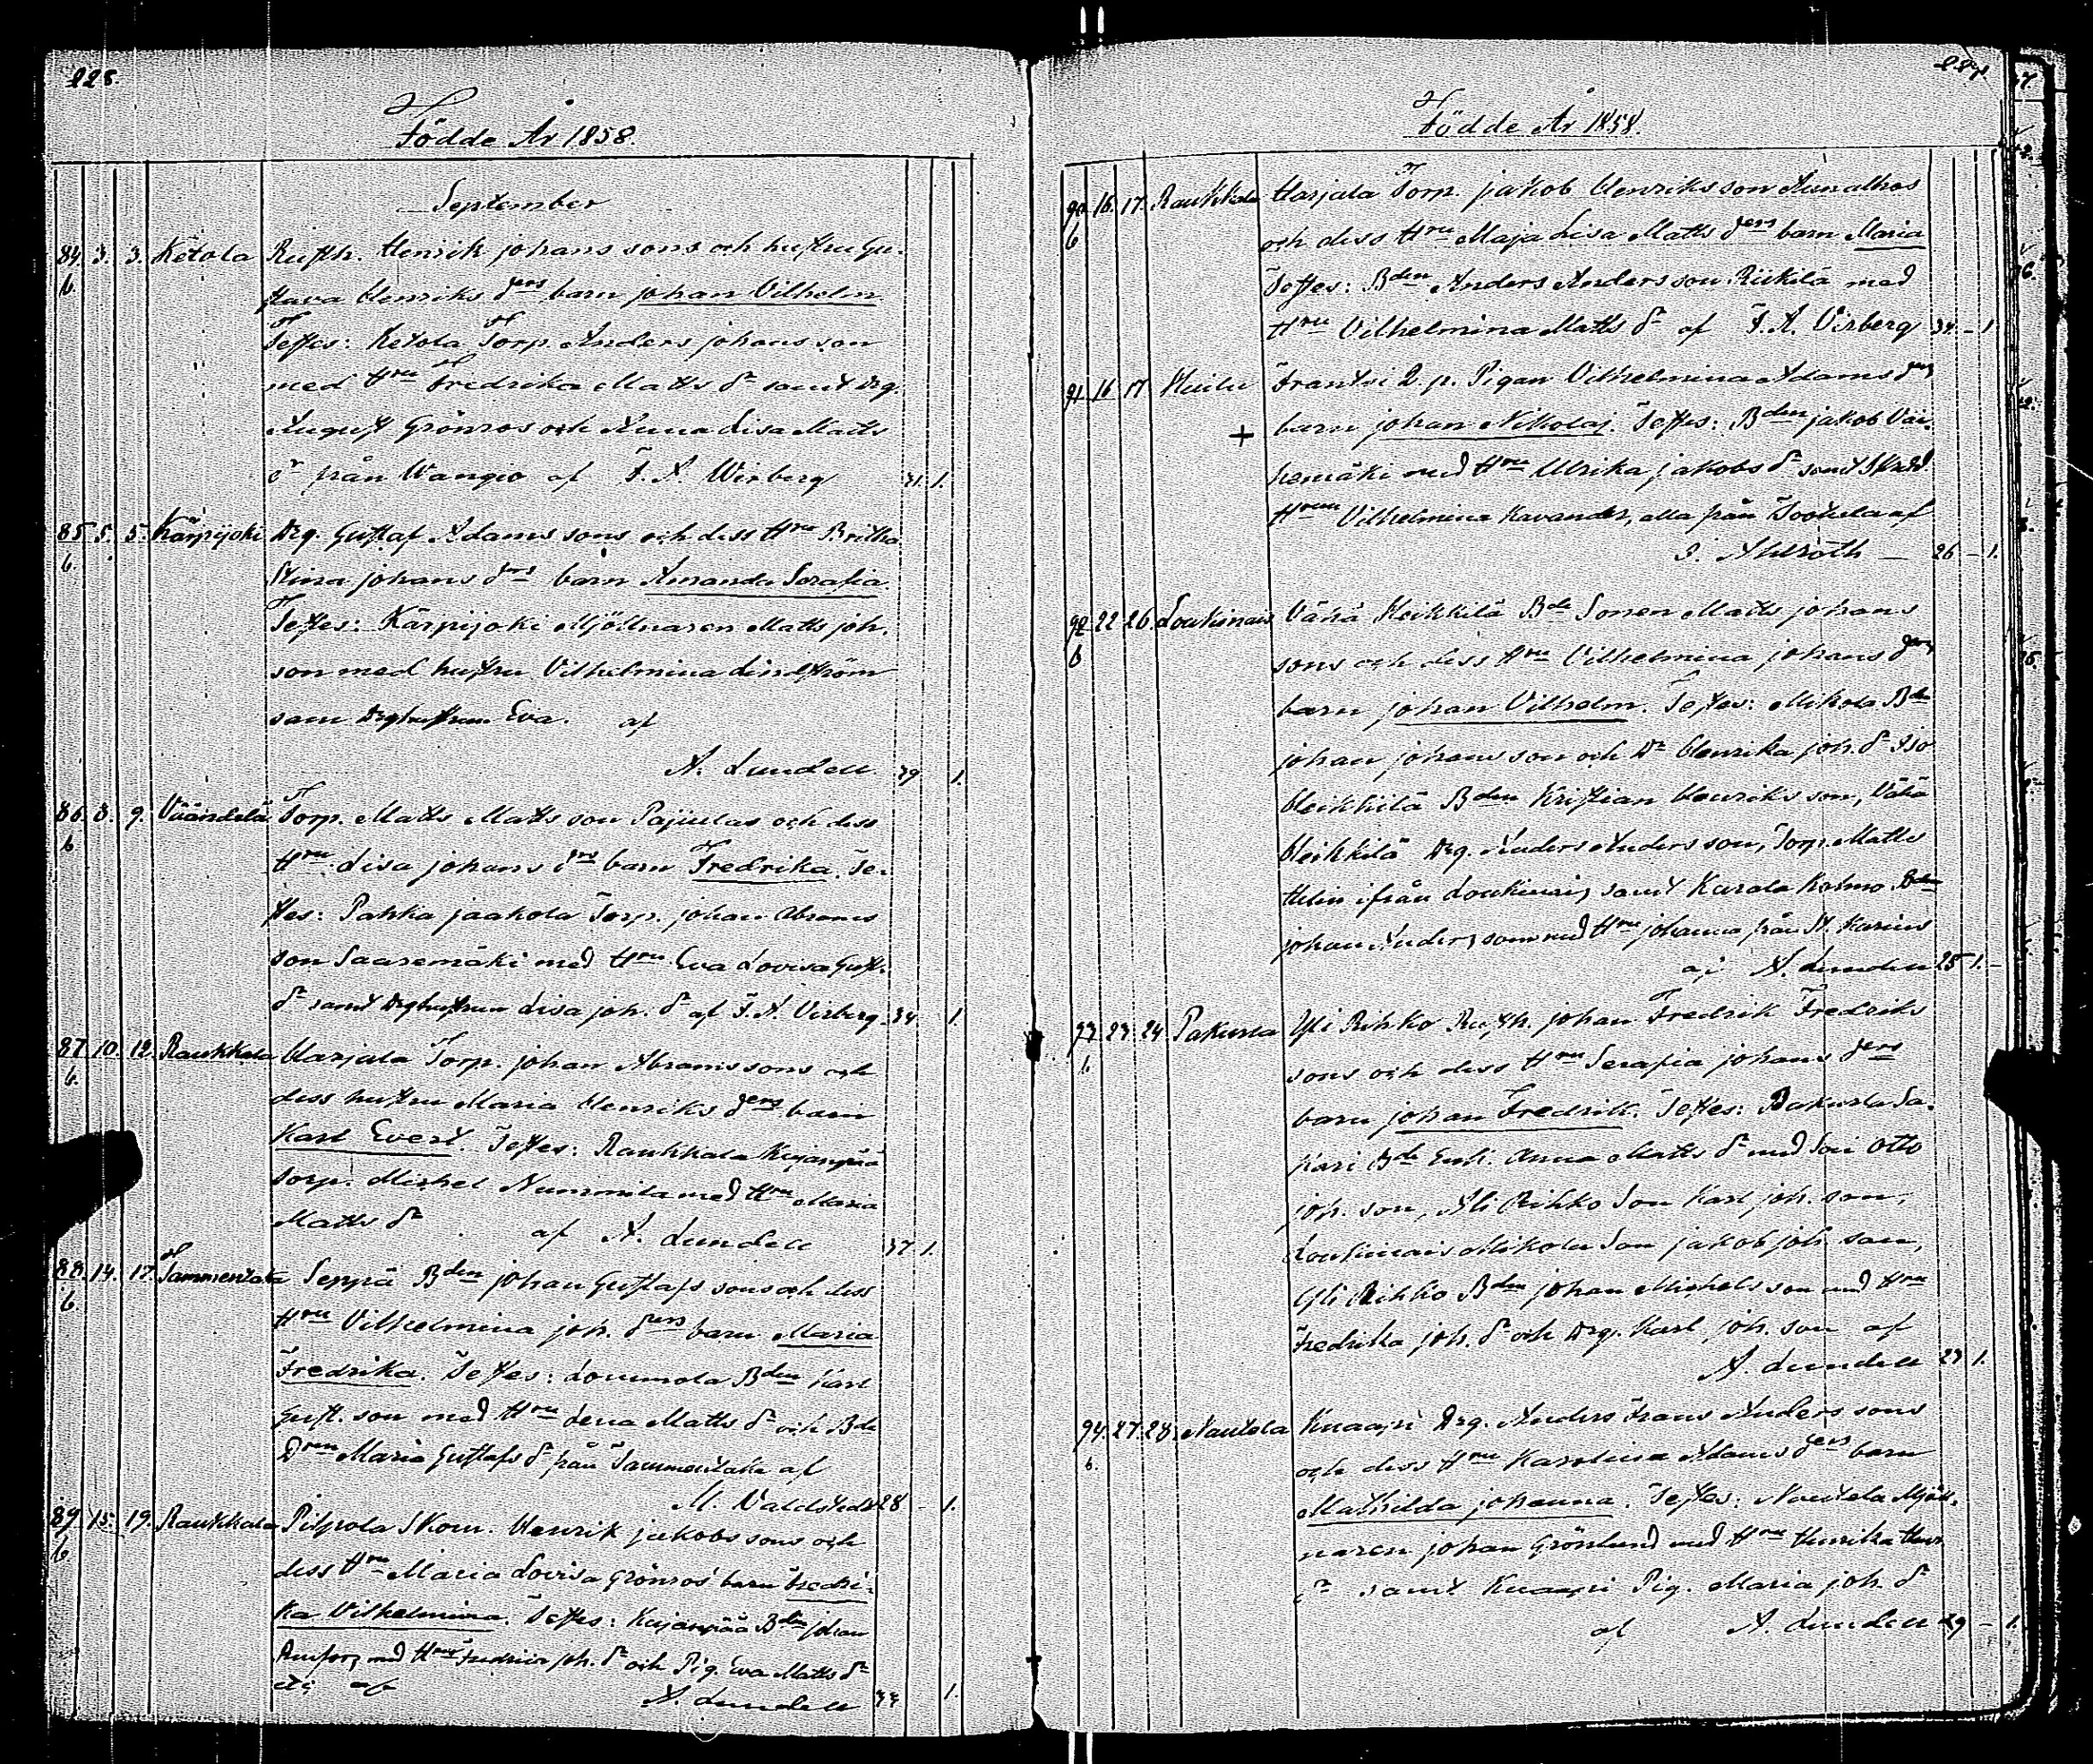 228.
Födde År 1858.
September
84. 3. 3. Ketola Rusth. Henrik johans sons och hustru Gu-
b. stava Henriks ders barn johan Vilhelm
Testes: Ketola Torp. Anders johans son
med Hru Fredrika Matts dr samt drg.
August Grönros och Anna Lisa Matts
dr från Wangio af F. A. Wirberg 31. 1.
85 5. 5. Kärpijoki Drg. Gustaf Adams sons och dess Hru Britha
b. Stina johans drs barn Amanda Serafia.
Testes: Kärpijoki Mjöllnaren Matts joh.
son med hustru Vilhelmina Lindström
sam drghustrun Eva. af
A. Lundell 39 1.
86. 8. 9. Väändelä Torp. Matts Matts son Pajulas och dess
b Hru Lisa johans drs barn Fredrika. Te-
stes: Pahka jaakola Torp. johan Abrams
son Saaremäki med Hru Eva Lovisa Gust.
dr samt drghustrun Lisa joh. dr af F. A. Virberg. 34 1.
87. 10. 12. Raukkala Harjala Torp. johan Abrams sons och
b. dess hustru Maria Henriks ders barn
Karl Evert. Testes: Raukkala Kujanpää
Torp. Mickel Nummila med Hru Maria
Matts dr af A. Lundell 37 1.
88. 14. 17. Tammentaka Seppä Bden johan Gustafs sons och dess
b Hru Vilhelmina joh. ders barn Maria
Fredrika. Testes: Lommola Bden Karl
Gust. son med Hru Lena Matts dr och Bde
Dren Maria Gustafs dr från Tammentaka af
M. Valdstedt 28 - 1.
89. 15. 19. Raukkala Pilpola Skom. Henrik jakobs sons och
b dess Hru Maria Lovisa Grönros barn Fredri-
ka Vilhelmina. Testes: Kujanpää Bden johan
med Hru joh. dr och Pig. Eva Matts dr
af A. Lundell 33 1.
Födde År 1858.
90. 16. 17. Raukkala Harjala Torp. jakob Henriks son
b och dess Hru Maja Lisa Matts ders barn Maria
Testes: Bden Anders Anders son Riikilä med
Hru Vilhelmina Matts dr af F. A. Virberg 34 - 1.
91. 16 17 Huilu Frantsi 2. p. Pigan Vilhelmina Adams ders
+ barn johan Nikolaj. Testes: Bden jakob Vai-
nemäki med Hru Ulrika jakobs dr samt Skrdd.
Hrun Vilhelmina Kavander, alla från af
I. Ahlroth - 26 - 1.
92. 22 26. Loukinais Vähä Heikkilä Bde Sonen Matts johans
b sons och dess Hru Vilhelmina johans ders
barn johan Vilhelm. Testes: Mikola Bde
johan johans son och Dr Henrika joh. dr Iso
Heikkilä Bden Kristian Henriks son, Vähä
Heikkilä Drg. Anders Anders son, Torp. Matts
ifrån Loukinais, samt Kurala Kolmo Bde
johan Anders son med Hru johanna från St. Karins
af A. Lundell 25 1. -
93. 23. 24. Pakurla Yli Rihko Rusth. johan Fredrik Fredriks
b sons och dess Hru Serafia johans ders
barn johan Fredrik. Testes: Pakurla Sa-
kari Bde Enk. Anna Matts dr med Son Otto
joh. son, Yli Rihko Son Karl joh. son,
Loukinais Mikola Son jakob joh. son,
Yli Rihko Bden johan Michels son med Hru
Fredrika joh. dr och Drg. Karl joh. son af
A. Lundell 23 1.
94. 27. 28. Nautela Knaapi Drg. Anders Frans Anders sons
b. och dess Hru Karolina Adams ders barn
Mathilda johanna. Testes: Nautela Mjöll-
naren johan Grönlund med Hru Henrika Henr.
dr samt Knaapi Pig. Maria joh. dr
af A. Lundell 29 - 1.